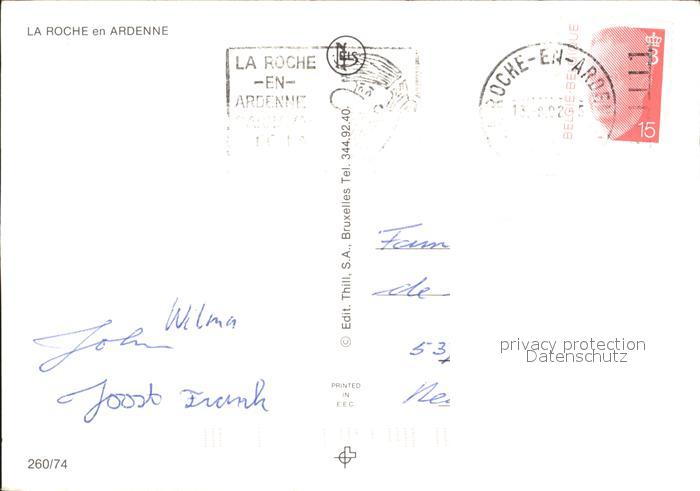 LA ROCHE en ARDENNE
LA ROCHE
-EN-
ARDENNE
ROCHE-EN-ARDEN
BELGIE-BELGIQUE
15
© Edit. Thill, S.A., Bruxelles Tel. 344.92.40.
Fam
de
53
Wilma
John
Joost Frank
privacy protection
Datenschutz
PRINTED
IN
E.E.C.
260/74